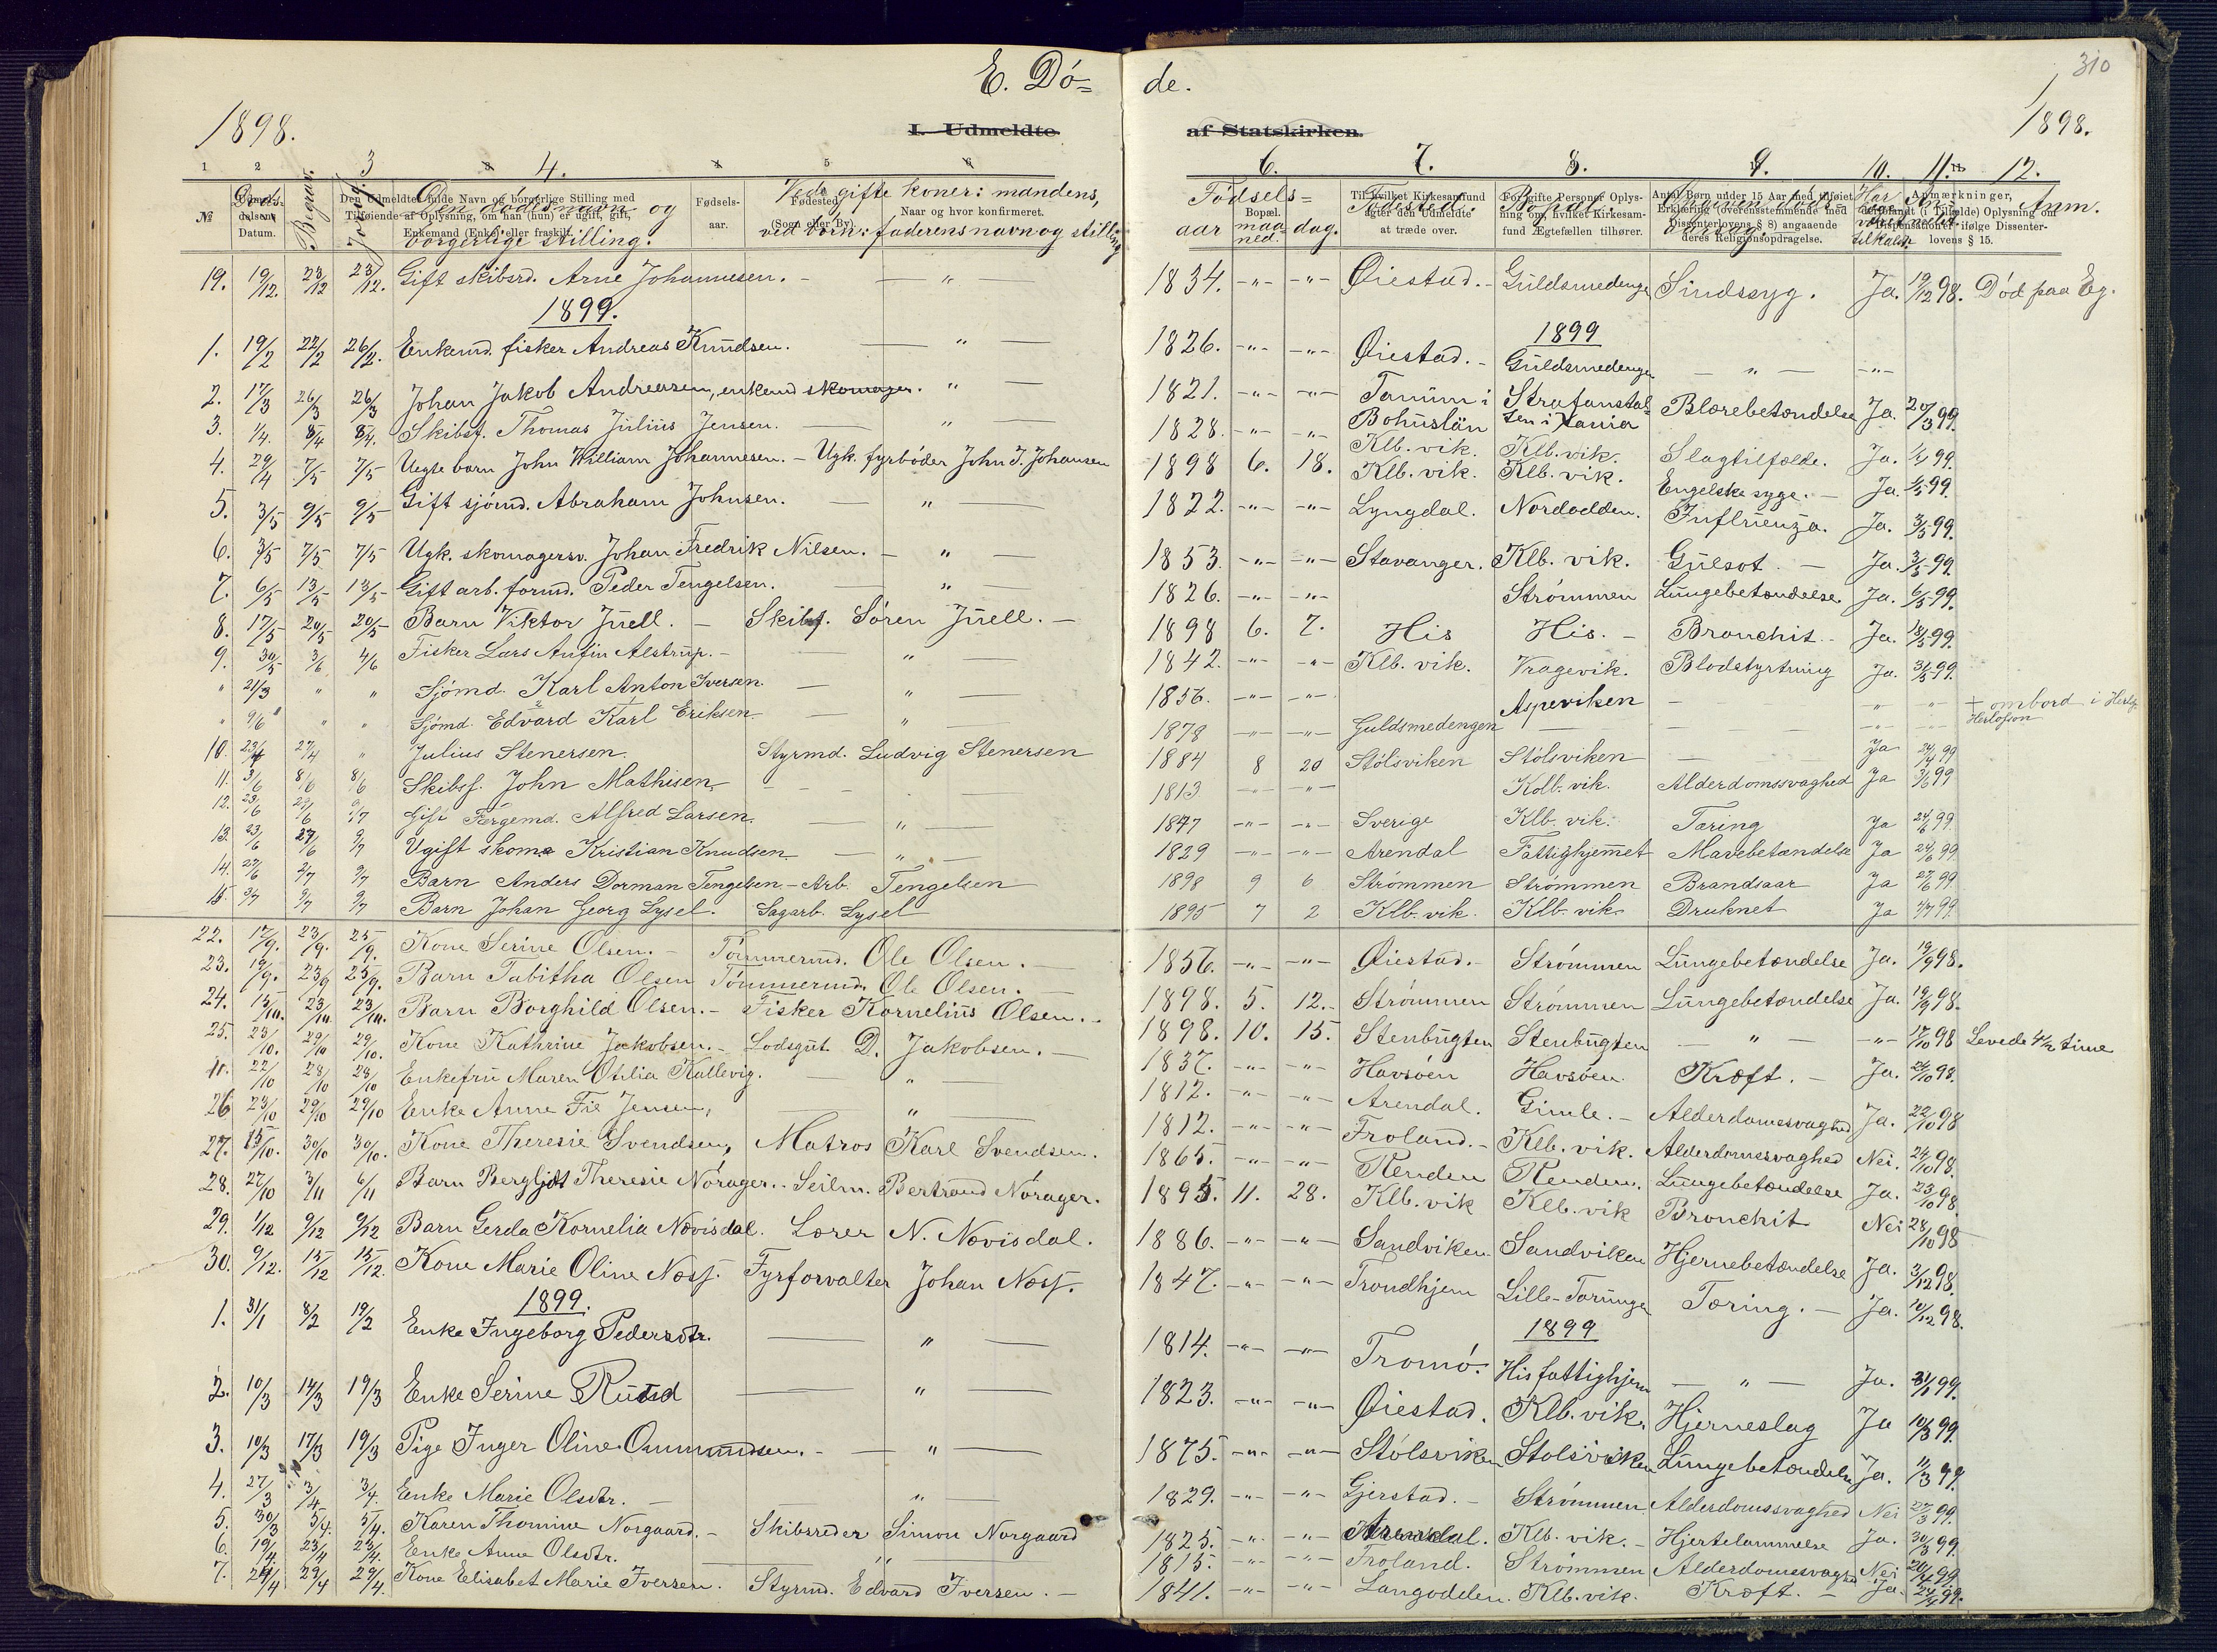 310
E. Dö=
de.
1898.
1898.
I. Udmeldte
af Statskirken.
1 2 3 4. 5 6 6. 7. 8. 9. 10. 11. 12.
No Begrav. Jordf. Den dødes navn og borgerlige stilling. Ved gifte koner: mandens, ved børn: faderens navn og stilling
Fødsels= aar maaned. dag. Fødested. Anm.
19. 19/12. 23/12 23/12. Gift skibsrd. Arne Johannesen. — " — 1834. -"- -"- Øiestad. - Guldsmedengen Sindssyg. Ja. 19/12 98. Död paa Eg.
1899.
1899
1. 19/2 22/2 26/2. Enkemd. fisker Andreas Knudsen. — " — 1826. -"- -"- Øiestad. - Guldsmedengen — " — -"-
2. 17/3 26/3 26/3 Johan Jakob Andreasen, enkemd skomager. " — 1821. -"- -"- Tanum i Bohuslän Strafanstalten i Xania Blærebetændelse Ja. 20/3 99.
3. 1/4. 8/4 8/4. Skibsf. Thomas Julius Jensen. — " — 1828. -"- " Klb. vik. Klb. vik. Slagtilfælde. Ja. 1/4 99.
4. 29/4 7/5 7/5 Uegte barn John William Johannesen. - Ugk. fyrbøder John J. Johansen 1898 6. 18. Klb. vik. Klb. vik. Engelske syge. - Ja. 1/5 99.
5. 3/5 9/5 9/5 Gift sjømd. Abraham Johnsen. — " — 1822. -"- -"- Lyngdal. Nordodden. Influenza. Ja. 3/5 99.
6. 3/5 7/5 7/5 Ugk. skomagersv. Johan Fredrik Nilsen. - " — 1853. -"- -"- Stavanger. Klb. vik. Gulsot. — Ja. 3/5 99.
7. 6/5 13/5 13/5 Gift arb. formd. Peder Tengelsen. — " — 1826. -"- -"- Strømmen Lungebetændelse. Ja. 6/5 99.
8. 17/5 20/5 20/5 Barn Viktor Juell. - Skibsf. Søren Juell. - 1898 6. 7. His His. - Bronchit. Ja. 18/5 99.
9. 30/5 3/6 4/6 Fisker Lars Anfin Alstrup. - — " — 1842. -"- -"- Klb. vik. Vragevik. Blodstyrtning Ja. 31/5 99.
" 21/3 " " Sjömd. Karl Anton Iversen. — " — 1856. -"- -"- Aspeviken — " "
" 9/6 " " Sjömd. Edvard Karl Eriksen. — " 1878 -"- -"- Guldsmedengen — — -"- + ombord i Herlofson
10. 23/4 27/4 " Julius Stenersen. Styrmd. Ludvig Stenersen 1884 8 20 Stölsviken Stölsviken — Ja 24/4 99
11. 3/6 8/6 8/6 Skibsf. John Mathisen 1813 -"- -"- Kolb. vik. Alderdomssvaghed Ja 3/6 99
12. 23/6 27/6 9/7 Gift Færgemd. Alfred Larsen. — " — 1847 -"- -"- Sverige Klb. vik. Tæring Ja 24/6 99
13. 23/6 27/6 9/7 Ugift skoma Kristian Knudsen — " — 1829 -"- -"- Arendal Fattighjemmet Mavebetændelse Ja 24/6 99
14. 27/6 2/7 9/7 Barn Anders Dorman Tengelsen - Arb. Tengelsen 1898 9 6 Strömmen Strömmen Brandsaar Ja 27/6 99
15. 9/7 9/7 Barn Johan Georg Lysel. Sagarb. Lysel 1895 7 2 Klb. vik. Klb. vik. Druknet Ja 7/7 99
22. 17/9. 23/9. 25/9. Kone Serine Olsen. - Tømmermd. Ole Olsen. 1856. -"- -"- Øiestad. - Strømmen Lungebetændelse Ja. 19/9 98.
23. 19/9. 23/9 25/9. Barn Tabitha Olsen Tømmermd. Ole Olsen. 1898. 5. 12. Strömmen Strömmen Lungebetændelse Ja. 19/9 98.
24. 15/10. 23/10. 23/10. Barn Borghild Olsen. - Fisker Kornelius Olsen. 1898. 10. 15. Stenbugten Stenbugten — " — -"- 17/10 98 Levede 4 1/2 time
25. 23/10. 29/10 29/10. Kone Kathrine Jakobsen. - Lodsgut. D. Jakobsen. — 1837. -"- -"- Havsöen Havsöen. Kræft. — Ja. 24/10 98.
22/10 28/10 28/10 Enkefru Maren Otilia Kallevig. — " — 1812. -"- -"- Arendal. Gimle. - Alderdomssvaghed Ja. 22/10 98
26 23/10 29/10 29/10 Enke Anne Fie Jensen, — " — 1812. -"- -"- Froland. - Klb. vik. Alderdomssvaghed Nei. 24/10 98.
27. 15/10. 30/10 30/10. Kone Theresie Svendsen, Matros Karl Svendsen. 1865. -"- -"- Renden Renden. Lungebetændelse Ja. 23/10 98.
28. 27/10 3/11 6/11 Barn Bergljot Theresie Nörager. Seilm. Bertrand Nörager. 1895. 11. 28. Klb. vik Klb. vik Bronchit Nei 28/10 98
29. 1/12 9/12 9/12 Barn Gerda Kornelia Nævisdal. Lærer N. Nævisdal. 1886. -"- -"- Sandviken Sandviken Hjernebetændelse Ja. 3/12 98.
30. 9/12. 15/12 15/12. Kone Marie Oline Næss. Fyrforvalter Johan Næss. 1847. -"- -"- Trondhjem Lille-Torungen Tæring. — Ja. 10/12 98.
1899.
1899
1. 31/1 8/2 19/2 Enke Ingeborg Pedersdtr. — " — 1814. -"- -"- Tromö. His fattighjem — " — Ja. 31/1 99.
2. 10/3 14/3 19/3 Enke Serine Ruud — " — 1823. -"- -"- Øiestad. Klb. vik. Hjerneslag Ja 10/3 99.
3. 10/3 17/3 19/3 Pige Inger Oline Ommundsen. - — " — 1875. -"- -"- Stölsviken Stolsviken Lungebetændelse Ja. 11/3 99.
4. 27/3 3/4 3/4. Enke Marie Olsdtr. — " — 1829. -"- -"- Gjerstad. - Strömmen Alderdomssvaghed Nei 27/3 99.
5. 30/3 5/4. 5/4. Karen Thomine Norgaard. - Skibsreder Simon Norgaard 1825. -"- -"- Arendal. Klb. vik. - Hjertelammelse Ja. 30/3 99.
6. 19/4. 23/4 23/4. Enke Anne Olsdtr. — " — 1815. -"- -"- Froland. Strömmen Alderdomssvaghed Nei 20/4 99.
7. 24/4 29/4 29/4. Kone Elisabet Marie Iversen. Styrmd. Edvard Iversen. - 1841. -"- -"- Langodden. Klb. vik. Kræft. — Ja. 24/4 99.